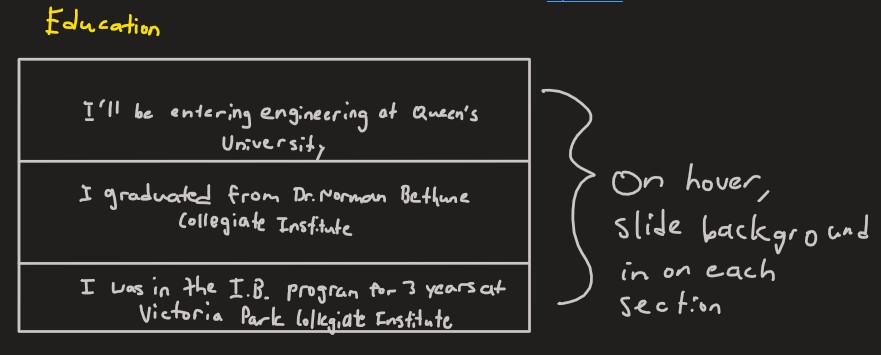 Education
I'll be entering engineering at Queen's
University
I graduated from Dr. Norman Bethune
Collegiate Institute
I was in the I.B. program for 3 years at
Victoria Park Collegiate Institute
On hover,
slide background
in on each
section